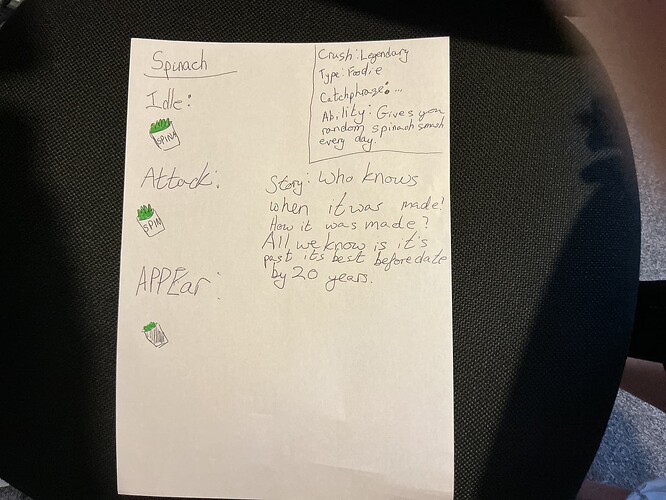 Spinach
Idle:
SPINA
Attack:
SPIN
APPEar:
Crush: Legendary
Type: Foodie
Catchphrase: ...
Ability: Gives you
random spinach
every day.
Story: Who knows
when it was made!
How it was made?
All we know is it's
past its best before date
by 20 years.